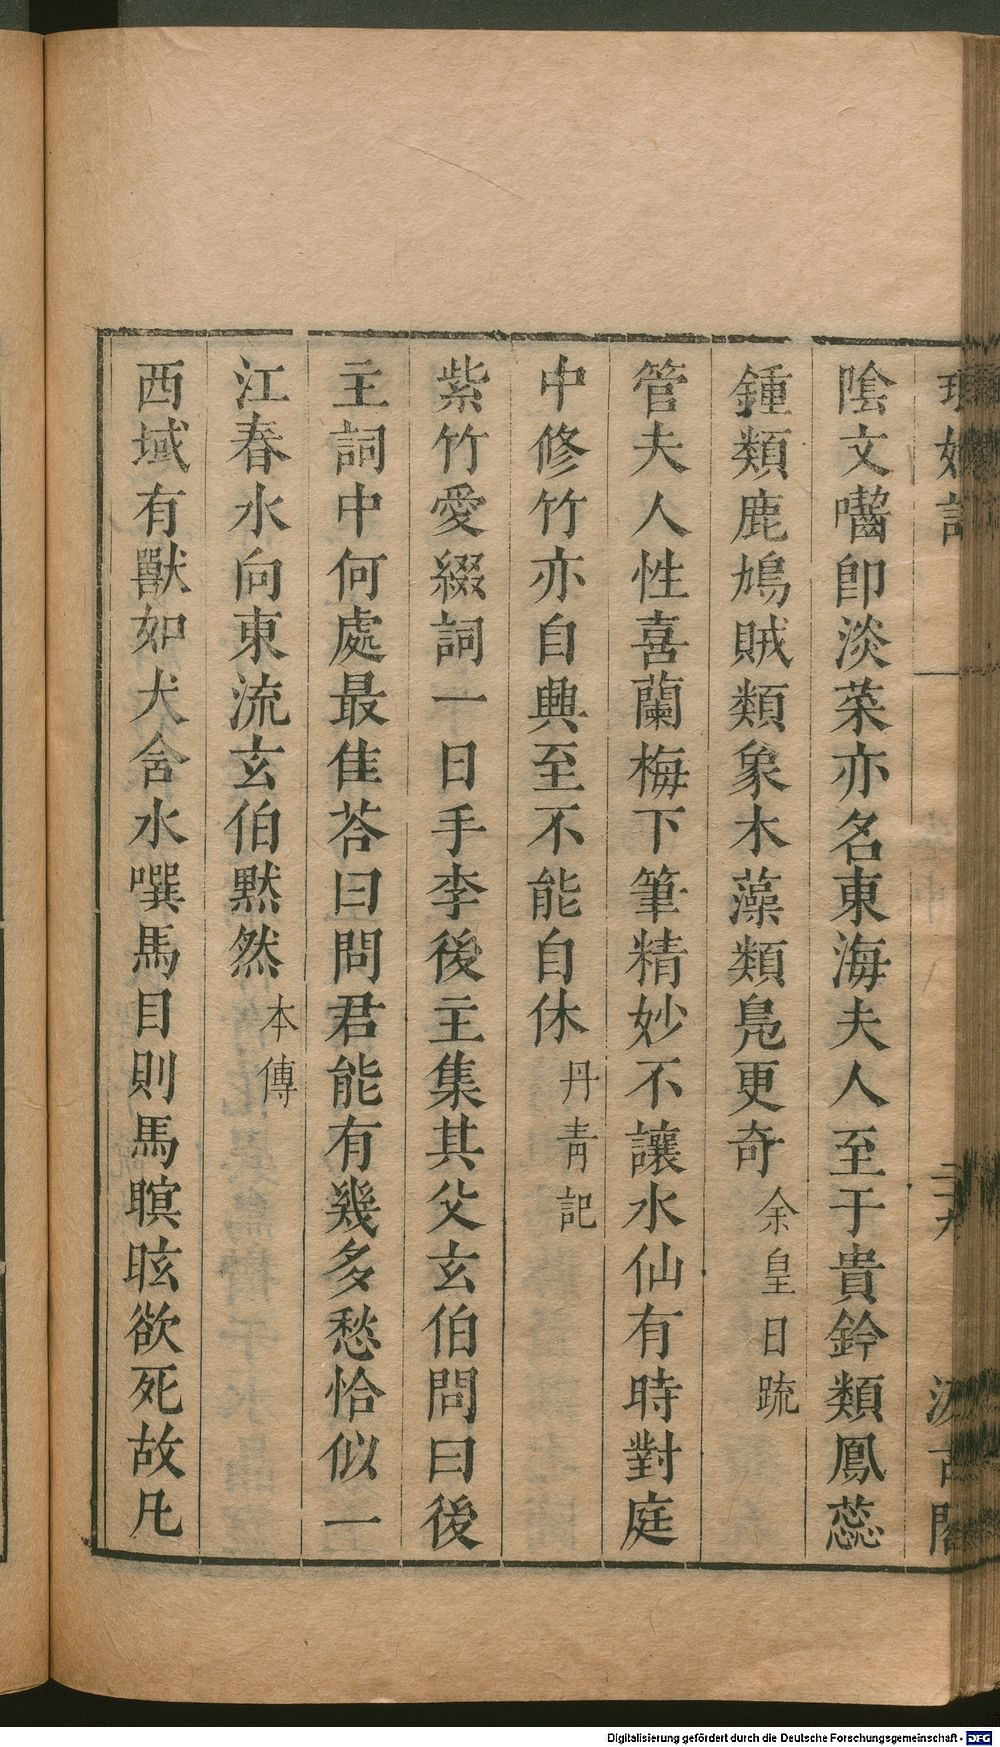 陰文囓卽淡菜亦名東海夫人至于貴鈐類鳳蕊
鍾類鹿鳩賊類象木藻類鳧更奇 余皇日疏
管夫人性喜蘭梅下筆精妙不讓水仙有時對庭
中修竹亦自興至不能自休 丹靑記
紫竹愛綴詞一日手李後主集其父玄伯問曰後
主詞中何處最佳荅曰問君能有幾多愁恰似一
江春水向東流玄伯默然 本傳
西域有獸如犬含水噀馬目則馬瞑眩欲死故凡
Digitalisierung gefördert durch die Deutsche Forschungsgemeinschaft - DFG